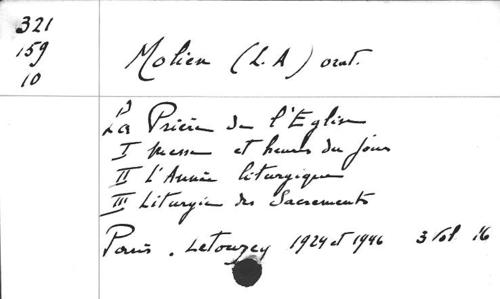 321
159
10
Molien (L.A) orat.
La Prière de l'Eglise
I Messe et heures du jour
II L'Année liturgique
III Liturgie des Sacrements
Paris. Letouzey 1924 et 1946 3 Vol 16